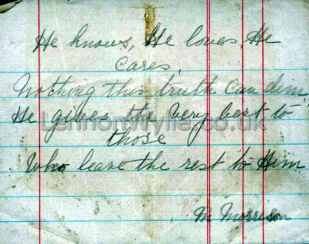 He knows, He loves, He
cares,
Nothing this truth can dim
He gives the very best to
those
Who leave the rest to Him
M Morrison